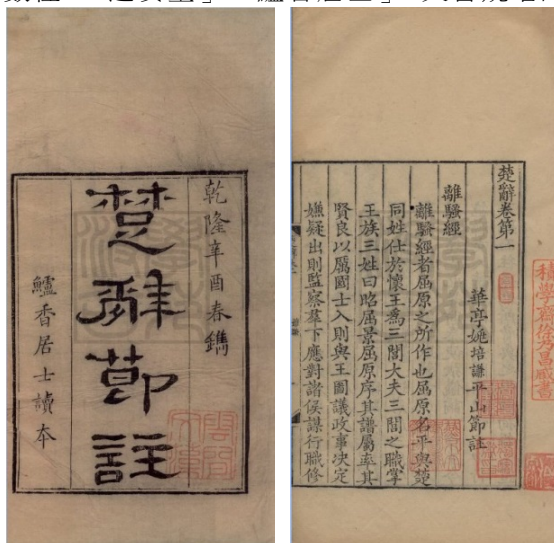 乾隆辛酉春鐫
楚辭節註
鱸香居士讀本
楚辭卷第一
華亭姚培謙平山節註
離騷經
離騷經者屈原之所作也屈原名平與楚
同姓仕於懷王爲三閭大夫三閭之職掌
王族三姓曰昭屈景屈原序其譜屬率其
賢良以厲國士入則與王圖議政事決定
嫌疑出則監察羣下應對諸侯謀行職修